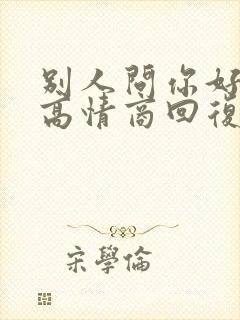 别人問你好
高情商回復
宋學倫